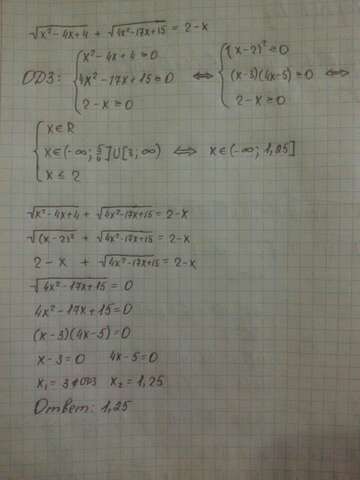 √(x²-4x+4) + √(4x²-17x+15) = 2-x
ОДЗ: { x²-4x+4≥0 ; 4x²-17x+15≥0 ; 2-x≥0 ⟺ { (x-2)²≥0 ; (x-3)(4x-5)≥0 ; 2-x≥0 ⟺
{ x∈R ; x∈(-∞; 5/4]U[3; ∞) ; x≤2 ⟺ x∈(-∞; 1,25]
√(x²-4x+4) + √(4x²-17x+15) = 2-x
√(x-2)² + √(4x²-17x+15) = 2-x
2-x + √(4x²-17x+15) = 2-x
√(4x²-17x+15) = 0
4x²-17x+15=0
(x-3)(4x-5)=0
x-3=0 4x-5=0
x₁=3∉ОДЗ x₂=1,25
Ответ: 1,25